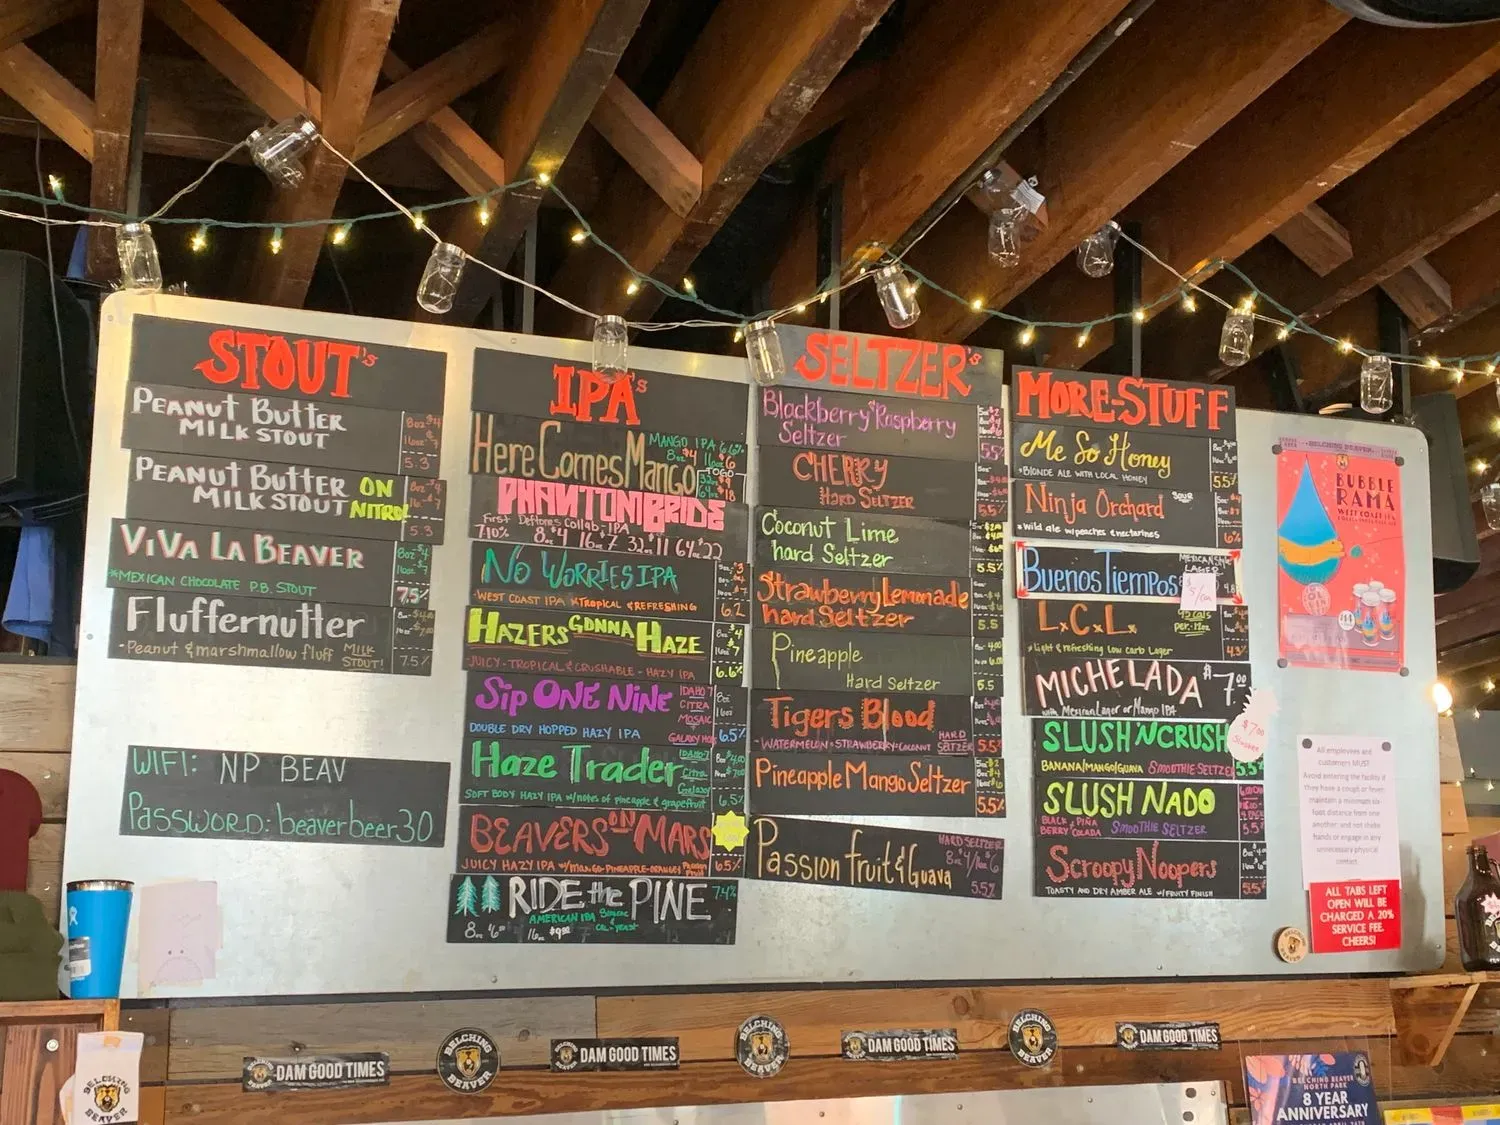 STOUT's
PEANUT BUTTER
MILK STOUT
8oz $4
16oz $7
5.3
PEANUT BUTTER ON
MILK STOUT NITRO
5.3
ViVa LA BEAVER
*MEXICAN CHOCOLATE P.B. STOUT
8oz $4
7.5%
Fluffernutter
-Peanut & marshmallow fluff MILK
STOUT!
7.5%
WIFI: NP BEAV
PASSWORD: beaverbeer30
IPA's
Here Comes Mango
MANGO IPA 6.6%
8oz $4 16oz $6
TOGO
PHANTOM BRIDE
First Deftones Collab-IPA
7.10% 8oz $4 16oz $7 32oz $11 64oz $22
NO WORRIES IPA
-WEST COAST IPA *TROPICAL & REFRESHING
6.2
HAZERS GONNA HAZE
JUICY-TROPICAL & CRUSHABLE - HAZY IPA
6.6%
Sip ONE NiNE
IDAHO 7
CITRA
MOSAIC
DOUBLE DRY HOPPED HAZY IPA
6.5%
Haze Trader
IDAHO 7
Citra
SOFT BODY HAZY IPA w/notes of pineapple & grapefruit
6.5%
BEAVERS ON MARS
JUICY HAZY IPA w/MANGO-PINEAPPLE-ORANGE
6.5%
RIDE the PINE
7.4%
AMERICAN IPA
CAL-YEAST
8oz $6 16oz $9
SELTZER's
Blackberry Raspberry
Seltzer
5.5%
CHERRY
HARD SELTZER
5.5%
Coconut Lime
hard Seltzer
5.5%
Strawberry Lemonade
hard Seltzer
5.5
Pineapple
Hard Seltzer
5.5
Tigers Blood
-WATERMELON-STRAWBERRY-COCONUT
HARD
SELTZER
5.5%
Pineapple Mango Seltzer
5.5%
Passion fruit & Guava
HARD SELTZER
8oz $4/16oz $6
5.5%
MORE-STUFF
Me So Honey
*BLONDE ALE WITH LOCAL HONEY
5.5%
Ninja Orchard
SOUR
*Wild ale w/peaches & nectarines
6%
Buenos Tiempos
MEXICAN STYLE
LAGER
L.C.L.
95 cals
per-12oz
*light & refreshing low carb Lager
4.3%
MICHELADA $7.00
with Mexican Lager or Mango IPA
SLUSH 'N CRUSH
BANANA/MANGO/GUAVA SMOOTHIE SELTZER
5.5%
$7.00
SLUSH NADO
BLACK & PIÑA
BERRY COLADA SMOOTHIE SELTZER
5.5%
Scroopy Noopers
TOASTY AND DRY AMBER ALE w/FRUITY FINISH
5.5%
BELCHING BEAVER
BUBBLE
RAMA
WEST COAST IPA
All employees and
customers MUST
Avoid entering the facility if
they have a cough or fever;
maintain a minimum six-
foot distance from one
another; and not shake
hands or engage in any
unnecessary physical
contact.
ALL TABS LEFT
OPEN WILL BE
CHARGED A 20%
SERVICE FEE.
CHEERS!
DAM GOOD TIMES
BELCHING BEAVER
DAM GOOD TIMES
BELCHING BEAVER
DAM GOOD TIMES
BELCHING BEAVER
DAM GOOD TIMES
BELCHING
BEAVER
BELCHING BEAVER
NORTH PARK
8 YEAR
ANNIVERSARY